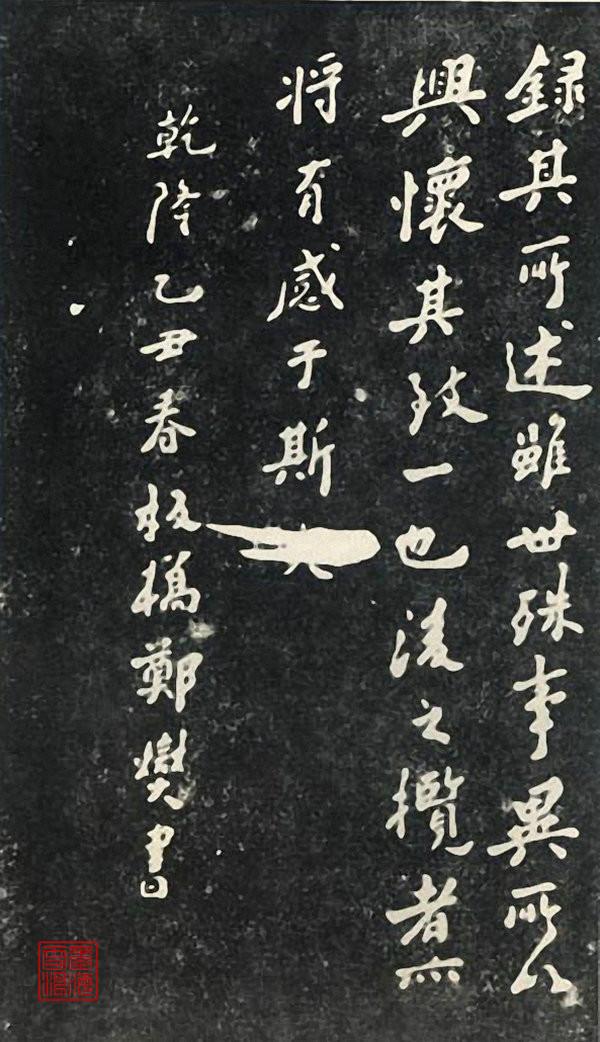 録其所述雖世殊事異所以
興懷其致一也後之攬者亦
将有感于斯
乾隆乙丑春板橋鄭燮書